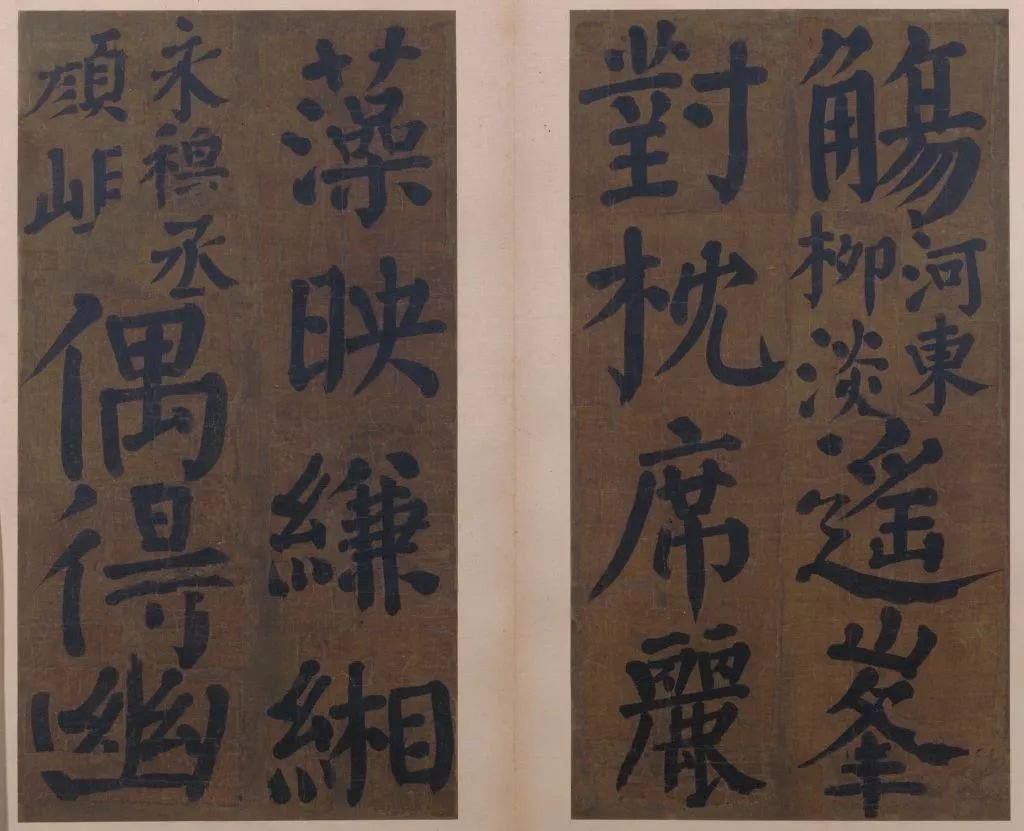 觴
河東
柳淡
遙峯
對枕席麗
藻映縑緗
永穆丞
顏岯
偶得幽